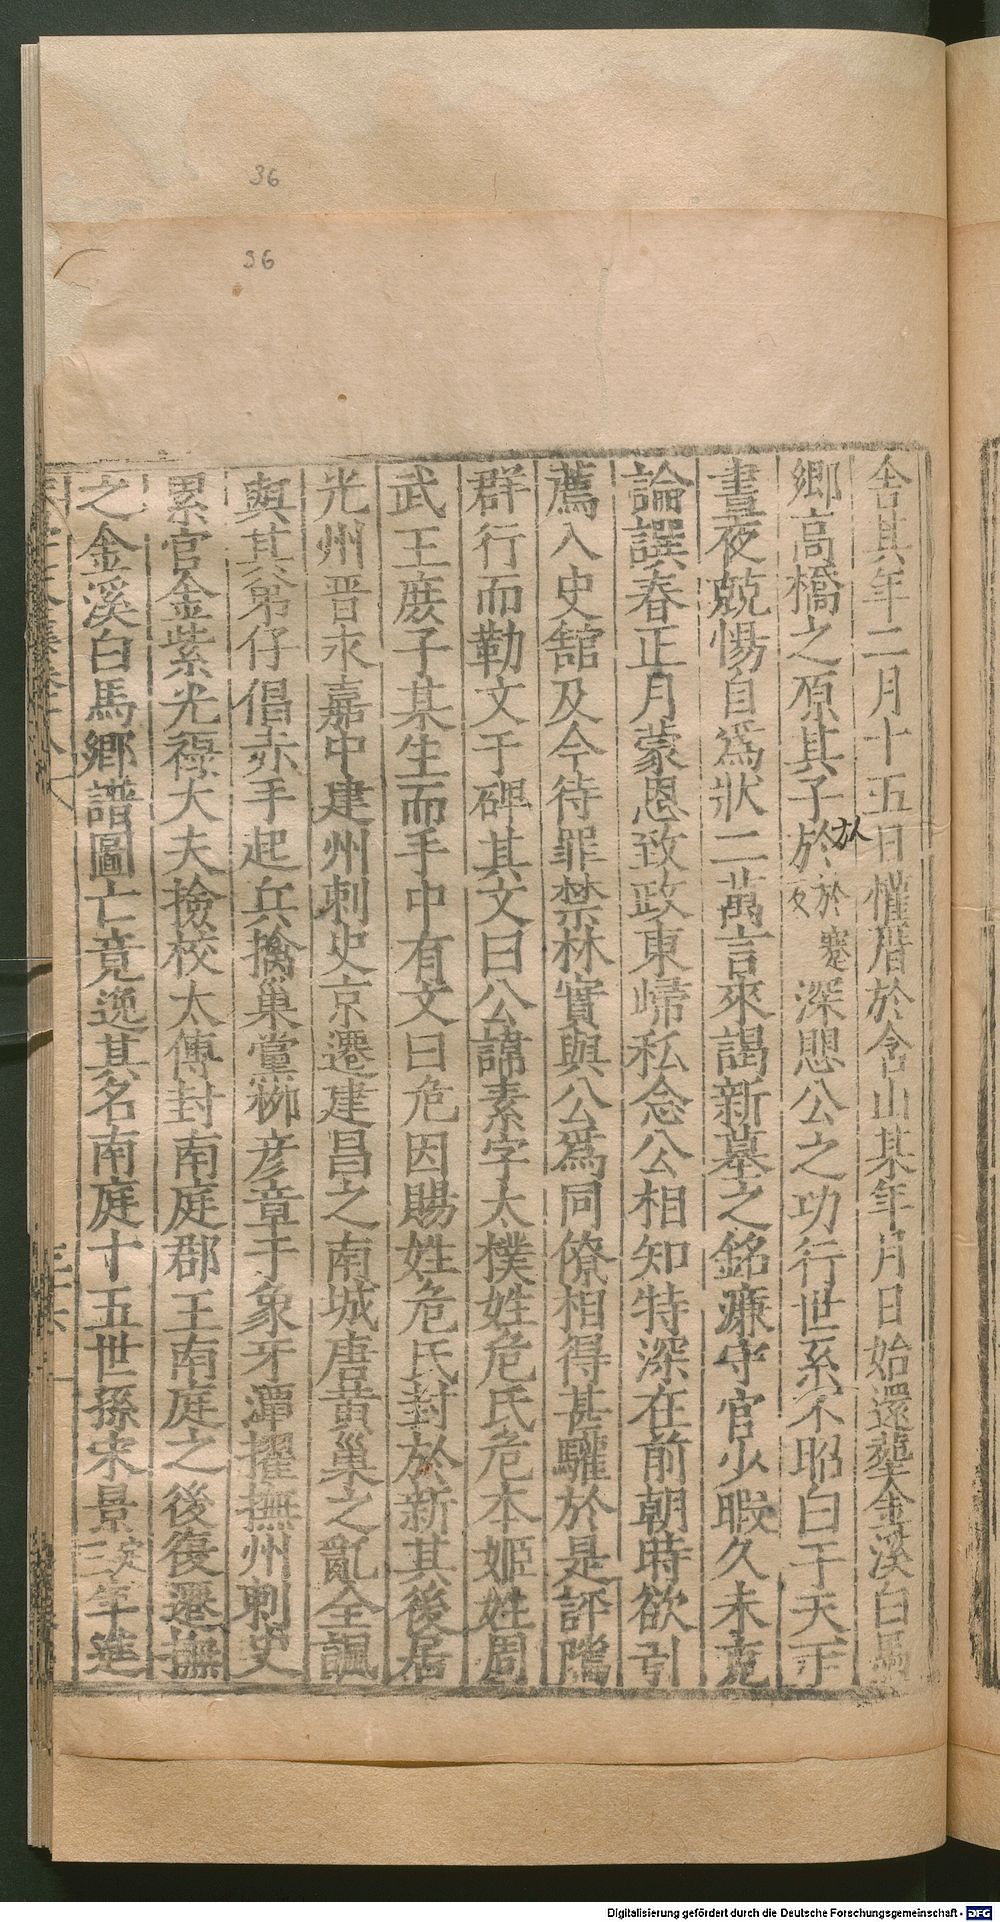 36
36
舍其年二月十五日懽厝於含山某年月日始還塟金溪白馬
鄉高橋之原其子於於深思公之功行世系不昭白于天下
晝夜兢惕自爲狀二萬言來謁新墓之銘濂守官少暇久未克
論譔春正月蒙恩致政東歸私念公相知特深在前朝時欲引
薦入史舘及今待罪禁林實與公爲同僚相得甚驩於是評隲
群行而勒文于碑其文曰公諱素字太樸姓危氏危本姬姓周
武王庶子某生而手中有文曰危因賜姓危氏封於新其後居
光州晋永嘉中建州刺史京遷建昌之南城唐黄巢之亂全諷
與其弟仔倡赤手起兵擒巢黨栁彦章于象牙潭擢撫州刺史
累官金紫光禄大夫撿校太傅封南庭郡王南庭之後復遷撫
之金溪白馬鄉譜圖亡竟逸其名南庭十五世孫宋景定三年進